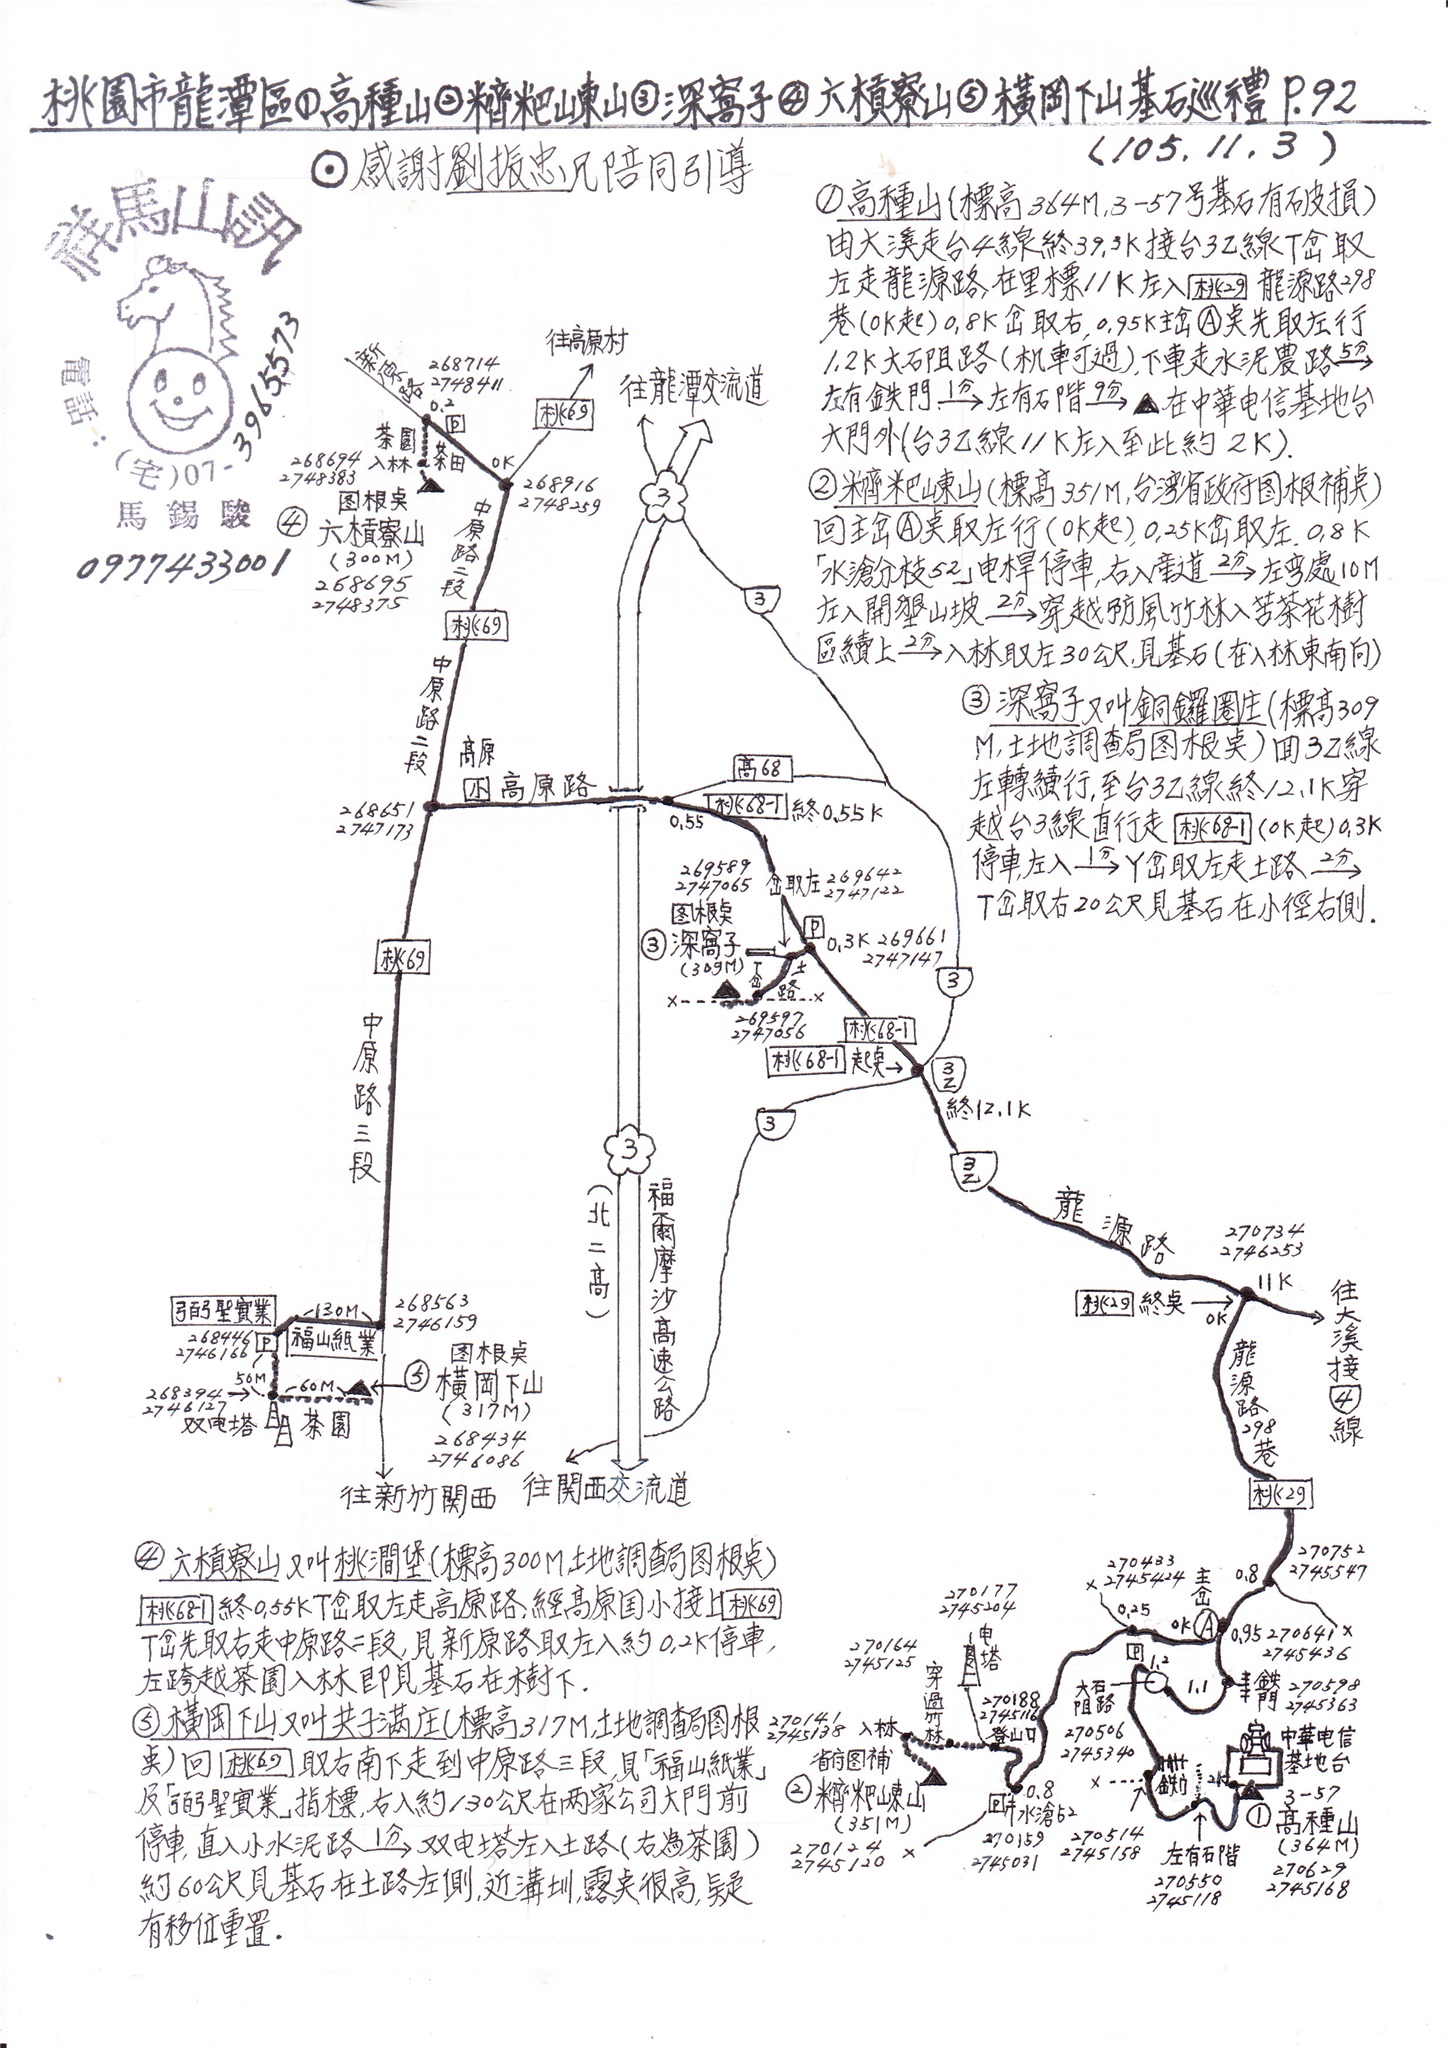 桃園市龍潭區①高種山②糍粑崠山③深窩子④六槓寮山⑤橫岡下山基石巡禮 P.92
(105.11.3)
⊙感謝劉振忠兄陪同引導
馬山
電話:
(宅)07-3965573
馬錫駿
0977433001
①高種山(標高364M,3-57号基石有破損)
由大溪走台4線終39.3K接台3Z線T岔取
左走龍源路,在里標11K左入桃29龍源路298
巷(0K起)0.8K岔取右,0.95K主岔Ⓐ奌先取左行
1.2K大石阻路(机車可過),下車走水泥農路5分→
左有鉄門1分→左有石階9分→▲在中華电信基地台
大門外(台3Z線11K左入至此約2K).
②糍粑崠山(標高351M,台湾省政府图根補奌)
回主岔Ⓐ奌取左行(0K起),0.25K岔取左.0.8K
「水滄分枝52」电桿停車,右入產道2分→左弯處10M
左入開墾山坡2分→穿越防風竹林入苦茶花樹
區續上2分→入林取左30公尺,見基石(在入林東南向)
③深窩子又叫銅鑼圈庄(標高309
M,土地調查局图根奌)回3Z線
左轉續行,至台3Z線終12.1K穿
越台3線直行走桃68-1(0K起)0.3K
停車,左入1分→Y岔取左走土路2分→
T岔取右20公尺見基石在小徑右側.
往高原村
往龍潭交流道
新原路
268714
2748411
0.2
P
桃69
茶園
入林
茶田
0K
268694
2748383
268916
2748259
图根奌
④六槓寮山
(300M)
268695
2748375
中原路二段
3
3
桃69
中原路二段
高原
小
高原路
高68
桃68-1 終0.55K
0.55
268651
2747173
269589
2747065
岔取左
269642
2747122
图根奌
③深窩子
(309M)
P
0.3K
269661
2747147
T岔
土路
269597
2747056
桃69
3
桃68-1
桃68-1 起奌→
3Z
終12.1K
3
3Z
中原路三段
3
(北二高)
福爾摩沙高速公路
龍源路
270734
2746253
11K
桃29 終奌→
0K
往大溪接4線
龍源路298巷
聖實業
130M
福山紙業
268563
2746159
268446
2746166
P
50M
60M
268394
2746127
双电塔
茶園
图根奌
⑤橫岡下山
(317M)
268434
2746086
往新竹関西
往関西交流道
桃29
④六槓寮山又叫桃澗堡(標高300M土地調查局图根奌)
桃68-1終0.55KT岔取左走高原路,經高原国小接上桃69
T岔先取右走中原路二段,見新原路取左入約0.2K停車,
左跨越茶園入林即見基石在樹下.
⑤橫岡下山又叫共子滿庄(標高317M,土地調查局图根
奌)回桃69取右南下走到中原路三段,見「福山紙業」
及「聖實業」指標,右入約130公尺在两家公司大門前
停車,直入小水泥路1分→双电塔左入土路(右為茶園)
約60公尺見基石在土路左側,近溝圳,露奌很高,疑
有移位重置.
270433
2745424
主岔
0.8
270752
2745547
270177
2745204
0.25
0K
A
0.95
270641
2745436
270164
2745125
电塔
穿過竹林
P
1.2
大石阻路
1.1
鉄門
270598
2745363
270141
2745138
入林
270188
2745116
登山口
270506
2745340
中華电信
基地台
省府图補
②糍粑崠山
(351M)
270124
2745120
0.8
P
水滄52
270159
2745031
2K
3-57
①高種山
(364M)
270629
2745168
270514
2745158
左有石階
270550
2745118